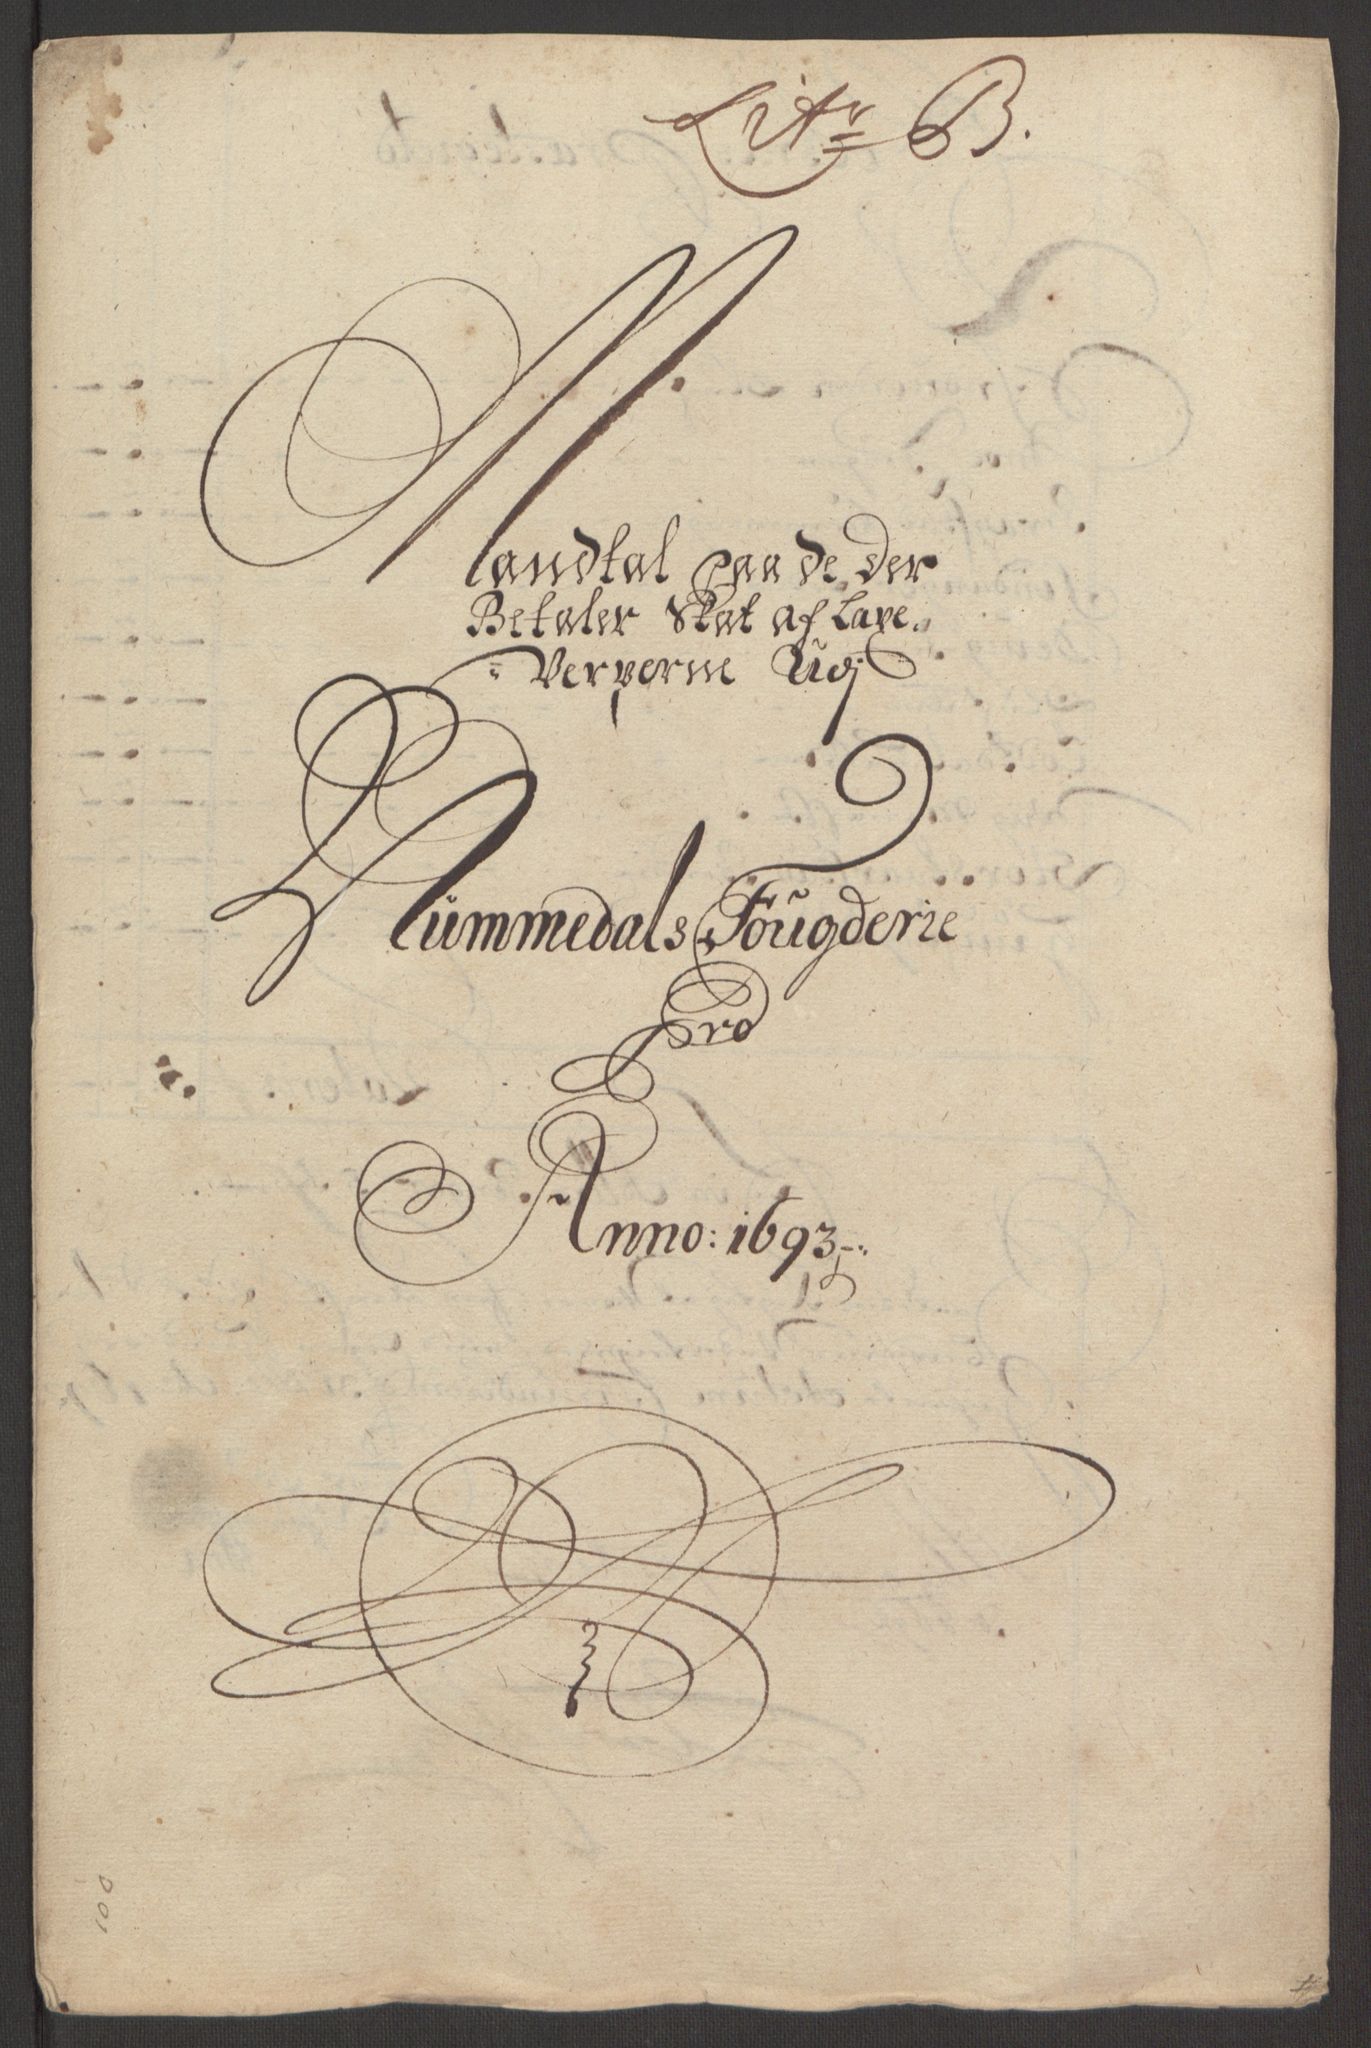 Litr B.
Mandtal paa de der
Betaler Skat af Laxe-
Verperne Udj
Nummedals Fougderie
Pro
Anno: 1693
100